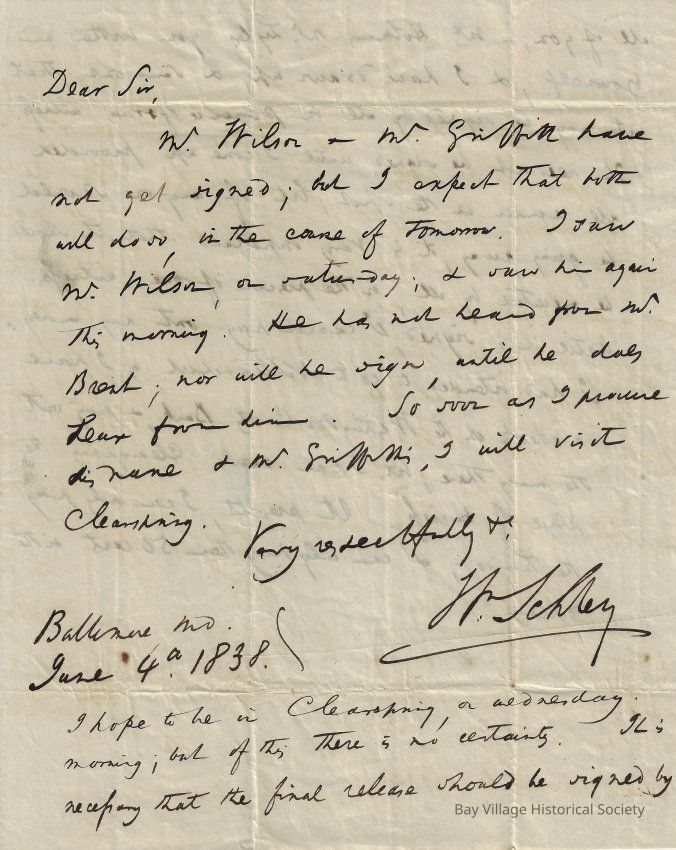 Dear Sir,
Mr. Wilson & Mr. Griffith have
not yet signed; but I expect that both
will do so, in the course of tomorrow. I saw
Mr. Wilson, on saturday; & saw him again
this morning. He has not heard from Mr.
Brent; nor will he sign, until he does
hear from him. So soon as I procure
his name & Mr. Griffith's, I will visit
Clearspring.
Very respectfully &c.
Wm. Schley
Baltimore Md.
June 4th. 1838.
I hope to be in Clearspring, on wednesday
morning; but of this there is no certainty. It is
necessary that the final release should be signed by
Bay Village Historical Society